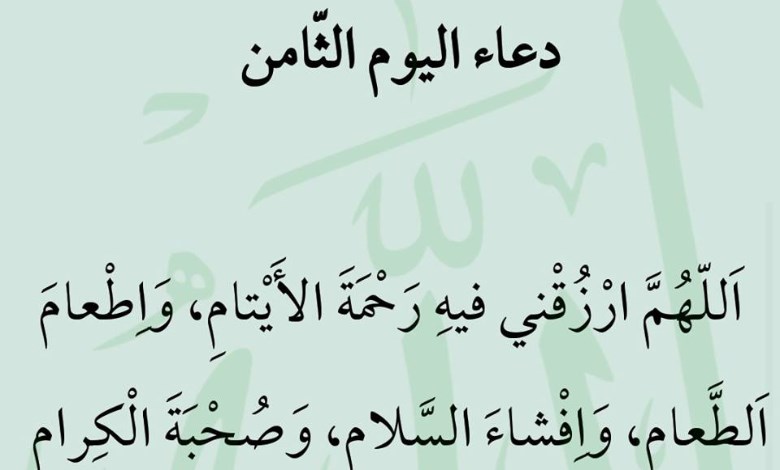 دعاء اليوم الثّامن
اَللّهُمَّ ارْزُقْني فيهِ رَحْمَةَ الأَيْتامِ، وَاِطْعامَ
اَلطَّعامِ، وَاِفْشاءَ السَّلامِ، وَصُحْبَةَ الْكِرامِ